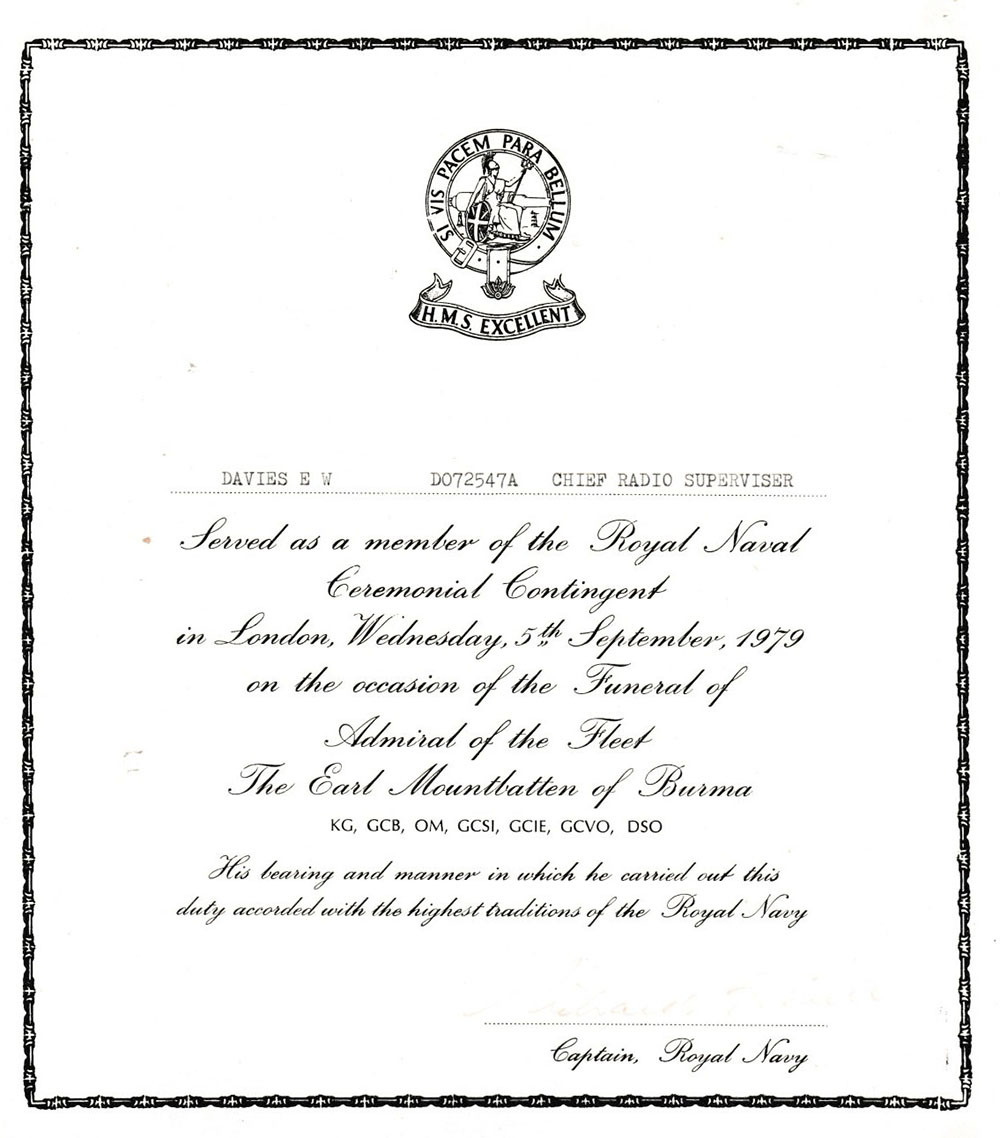 SI VIS PACEM PARA BELLUM
H.M.S. EXCELLENT
DAVIES E W D072547A CHIEF RADIO SUPERVISER
Served as a member of the Royal Naval
Ceremonial Contingent
in London, Wednesday, 5th September, 1979
on the occasion of the Funeral of
Admiral of the Fleet
The Earl Mountbatten of Burma
KG, GCB, OM, GCSI, GCIE, GCVO, DSO
His bearing and manner in which he carried out this
duty accorded with the highest traditions of the Royal Navy
Captain, Royal Navy